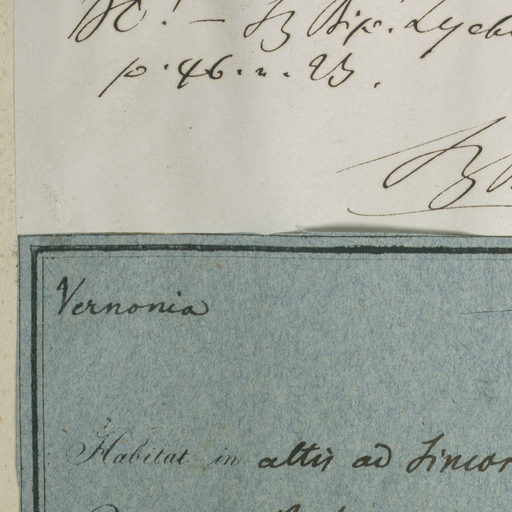 DC! – Sz Bip. Lych
p. 46. n. 23.
Sz
Vernonia
Habitat in altis ad Sincor